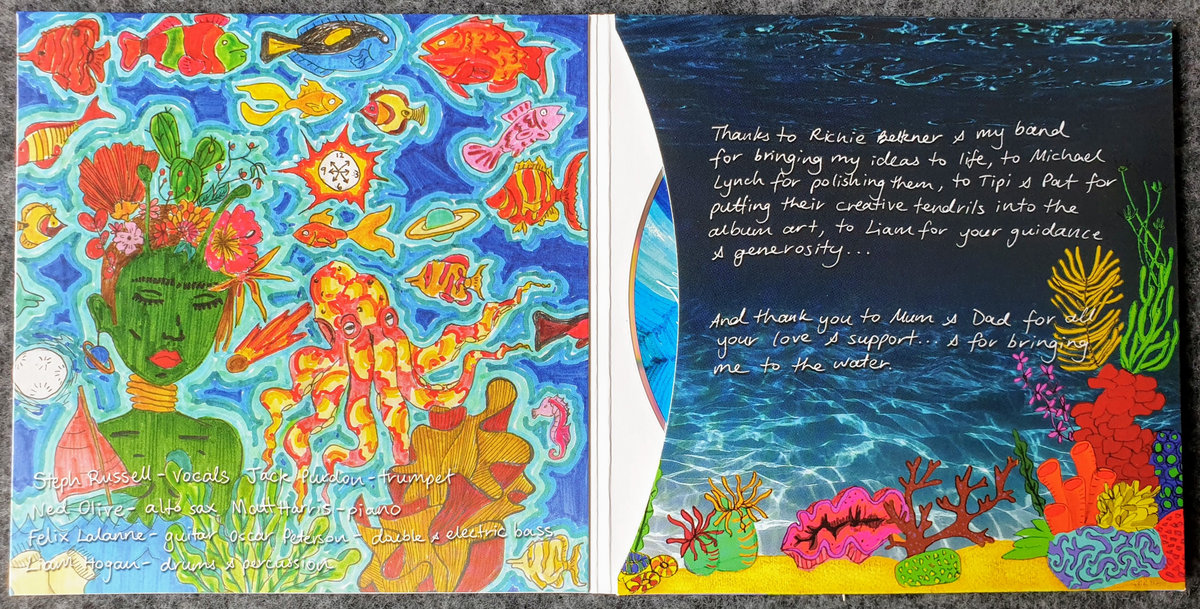 Steph Russell - vocals Jack Purdon - trumpet
Ned Olive - alto sax, Matt Harris - piano
Felix Lalanne - guitar Oscar Peterson - double & electric bass
Liam Hogan - drums & percussion
12
Thanks to Richie Belkner & my band
for bringing my ideas to life, to Michael
Lynch for polishing them, to Tipi & Pat for
putting their creative tendrils into the
album art, to Liam for your guidance
& generosity...
And thank you to Mum & Dad for all
your love & support... & for bringing
me to the water.